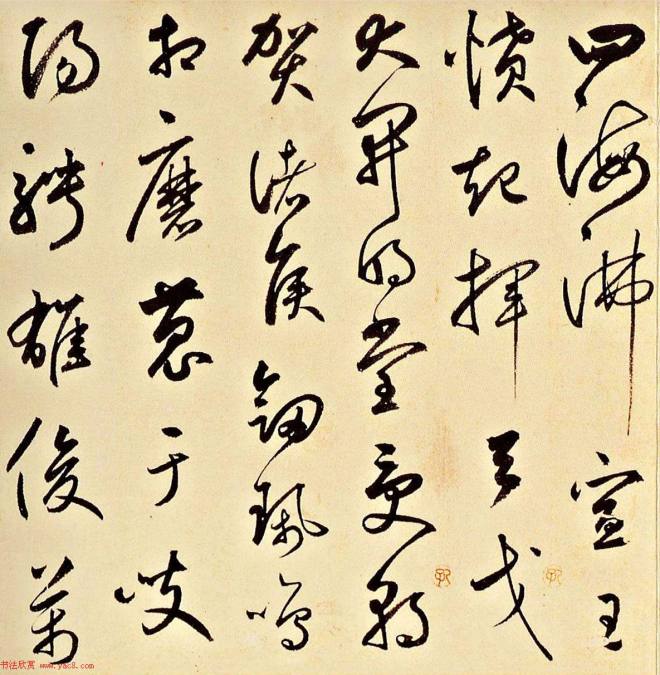 四海沸宣王
憤起揮天戈
大開明堂受朝
賀諸侯劍珮鳴
相磨蒐于岐
陽騁雄俊萬
书法欣赏 www.yac8.com